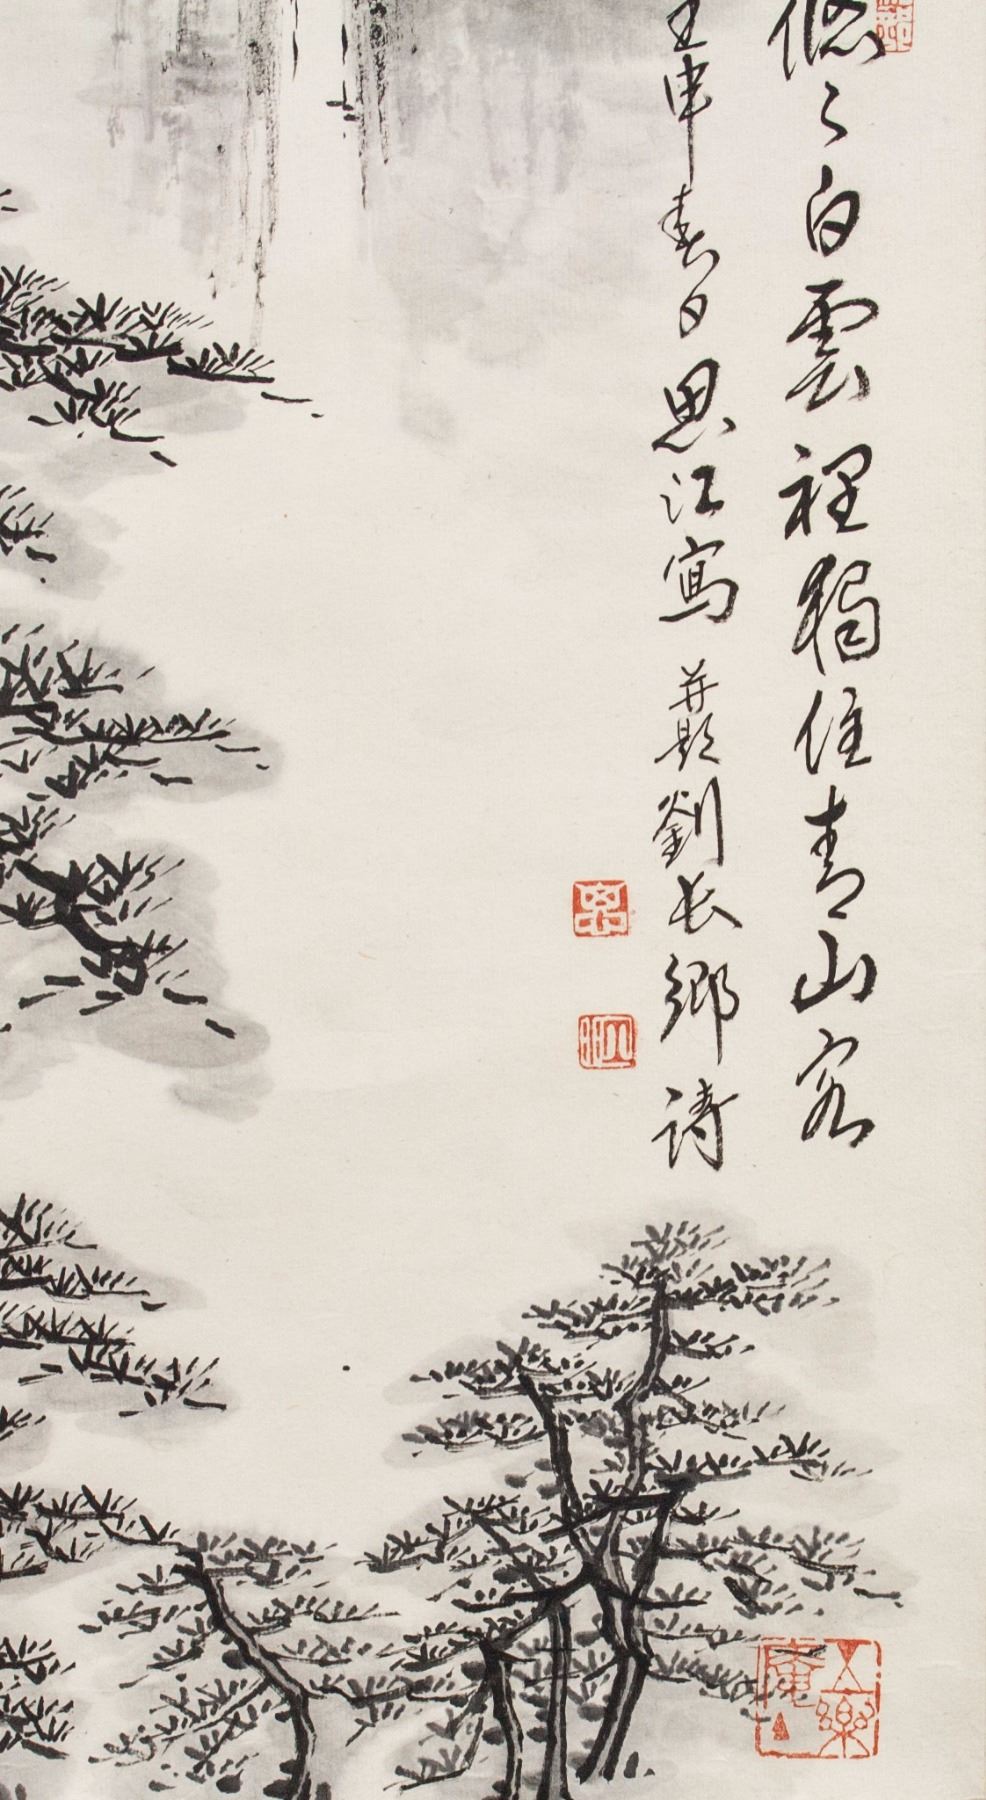 悠々白雲裡獨住青山客
壬申春日思江寫并題劉長卿詩